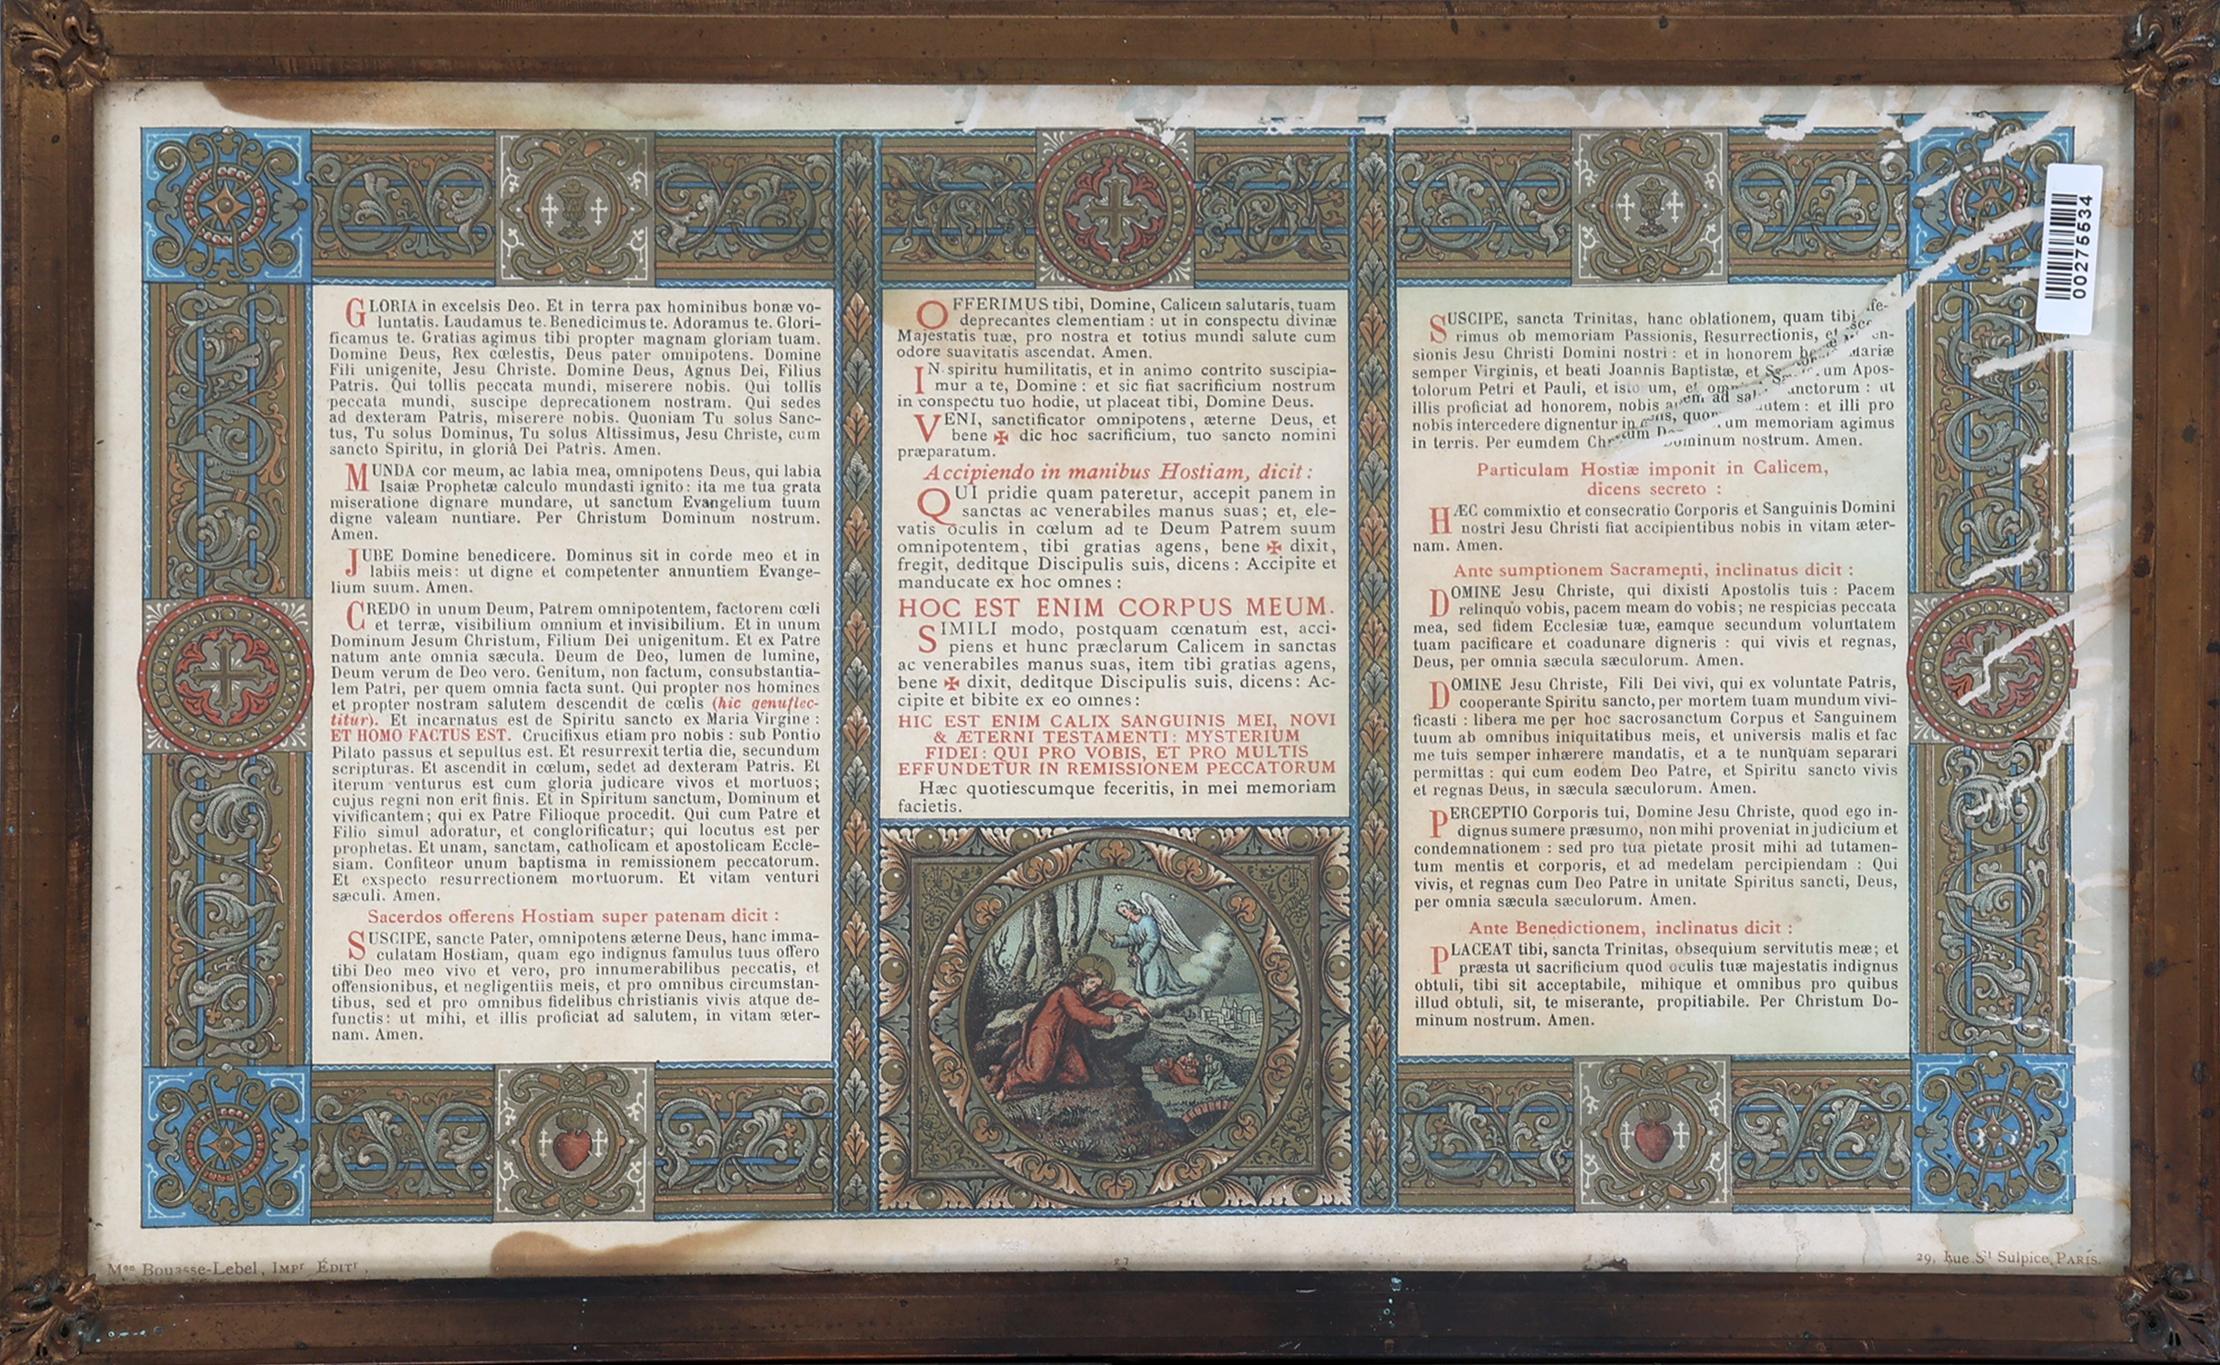 GLORIA in excelsis Deo. Et in terra pax hominibus bonæ vo-
luntatis. Laudamus te. Benedicimus te. Adoramus te. Glori-
ficamus te. Gratias agimus tibi propter magnam gloriam tuam.
Domine Deus, Rex cœlestis, Deus pater omnipotens. Domine
Fili unigenite, Jesu Christe. Domine Deus, Agnus Dei, Filius
Patris. Qui tollis peccata mundi, miserere nobis. Qui tollis
peccata mundi, suscipe deprecationem nostram. Qui sedes
ad dexteram Patris, miserere nobis. Quoniam Tu solus Sanc-
tus, Tu solus Dominus, Tu solus Altissimus, Jesu Christe, cum
sancto Spiritu, in gloriâ Dei Patris. Amen.
MUNDA cor meum, ac labia mea, omnipotens Deus, qui labia
Isaiæ Prophetæ calculo mundasti ignito: ita me tua grata
miseratione dignare mundare, ut sanctum Evangelium tuum
digne valeam nuntiare. Per Christum Dominum nostrum.
Amen.
JUBE Domine benedicere. Dominus sit in corde meo et in
labiis meis: ut digne et competenter annuntiem Evange-
lium suum. Amen.
CREDO in unum Deum, Patrem omnipotentem, factorem cœli
et terræ, visibilium omnium et invisibilium. Et in unum
Dominum Jesum Christum, Filium Dei unigenitum. Et ex Patre
natum ante omnia sæcula. Deum de Deo, lumen de lumine,
Deum verum de Deo vero. Genitum, non factum, consubstantia-
lem Patri, per quem omnia facta sunt. Qui propter nos homines
et propter nostram salutem descendit de cœlis (hic genuflec-
titur). Et incarnatus est de Spiritu sancto ex Maria Virgine :
ET HOMO FACTUS EST. Crucifixus etiam pro nobis : sub Pontio
Pilato passus et sepultus est. Et resurrexit tertia die, secundum
scripturas. Et ascendit in cœlum, sedet ad dexteram Patris. Et
iterum venturus est cum gloria judicare vivos et mortuos;
cujus regni non erit finis. Et in Spiritum sanctum, Dominum et
vivificantem; qui ex Patre Filioque procedit. Qui cum Patre et
Filio simul adoratur, et conglorificatur; qui locutus est per
prophetas. Et unam, sanctam, catholicam et apostolicam Eccle-
siam. Confiteor unum baptisma in remissionem peccatorum.
Et exspecto resurrectionem mortuorum. Et vitam venturi
sæculi. Amen.
Sacerdos offerens Hostiam super patenam dicit :
SUSCIPE, sancte Pater, omnipotens æterne Deus, hanc imma-
culatam Hostiam, quam ego indignus famulus tuus offero
tibi Deo meo vivo et vero, pro innumerabilibus peccatis, et
offensionibus, et negligentiis meis, et pro omnibus circumstan-
tibus, sed et pro omnibus fidelibus christianis vivis atque de-
functis: ut mihi, et illis proficiat ad salutem, in vitam æter-
nam. Amen.
OFFERIMUS tibi, Domine, Calicem salutaris, tuam
deprecantes clementiam : ut in conspectu divinæ
Majestatis tuæ, pro nostra et totius mundi salute cum
odore suavitatis ascendat. Amen.
IN spiritu humilitatis, et in animo contrito suscipia-
mur a te, Domine : et sic fiat sacrificium nostrum
in conspectu tuo hodie, ut placeat tibi, Domine Deus.
VENI, sanctificator omnipotens, æterne Deus, et
bene ✠ dic hoc sacrificium, tuo sancto nomini
præparatum.
Accipiendo in manibus Hostiam, dicit :
QUI pridie quam pateretur, accepit panem in
sanctas ac venerabiles manus suas; et, ele-
vatis oculis in cœlum ad te Deum Patrem suum
omnipotentem, tibi gratias agens, bene ✠ dixit,
fregit, deditque Discipulis suis, dicens : Accipite et
manducate ex hoc omnes :
HOC EST ENIM CORPUS MEUM.
SIMILI modo, postquam cœnatum est, acci-
piens et hunc præclarum Calicem in sanctas
ac venerabiles manus suas, item tibi gratias agens,
bene ✠ dixit, deditque Discipulis suis, dicens : Ac-
cipite et bibite ex eo omnes :
HIC EST ENIM CALIX SANGUINIS MEI, NOVI
& ÆTERNI TESTAMENTI: MYSTERIUM
FIDEI: QUI PRO VOBIS, ET PRO MULTIS
EFFUNDETUR IN REMISSIONEM PECCATORUM
Hæc quotiescumque feceritis, in mei memoriam
facietis.
SUSCIPE, sancta Trinitas, hanc oblationem, quam tibi
rimus ob memoriam Passionis, Resurrectionis, et
sionis Jesu Christi Domini nostri : et in honorem Mariæ
semper Virginis, et beati Joannis Baptistæ, et um Apos-
tolorum Petri et Pauli, et anctorum : ut
illis proficiat ad honorem, nobis ad et illi pro
nobis intercedere dignentur in quorum memoriam agimus
in terris. Per eumdem Dominum nostrum. Amen.
Particulam Hostiæ imponit in Calicem,
dicens secreto :
HÆC commixtio et consecratio Corporis et Sanguinis Domini
nostri Jesu Christi fiat accipientibus nobis in vitam æter-
nam. Amen.
Ante sumptionem Sacramenti, inclinatus dicit :
DOMINE Jesu Christe, qui dixisti Apostolis tuis : Pacem
relinquo vobis, pacem meam do vobis; ne respicias peccata
mea, sed fidem Ecclesiæ tuæ, eamque secundum voluntatem
tuam pacificare et coadunare digneris : qui vivis et regnas,
Deus, per omnia sæcula sæculorum. Amen.
DOMINE Jesu Christe, Fili Dei vivi, qui ex voluntate Patris,
cooperante Spiritu sancto, per mortem tuam mundum vivi-
ficasti : libera me per hoc sacrosanctum Corpus et Sanguinem
tuum ab omnibus iniquitatibus meis, et universis malis et fac
me tuis semper inhærere mandatis, et a te nunquam separari
permittas : qui cum eodem Deo Patre, et Spiritu sancto vivis
et regnas Deus, in sæcula sæculorum. Amen.
PERCEPTIO Corporis tui, Domine Jesu Christe, quod ego in-
dignus sumere præsumo, non mihi proveniat in judicium et
condemnationem : sed pro tua pietate prosit mihi ad tutamen-
tum mentis et corporis, et ad medelam percipiendam : Qui
vivis, et regnas cum Deo Patre in unitate Spiritus sancti, Deus,
per omnia sæcula sæculorum. Amen.
Ante Benedictionem, inclinatus dicit :
PLACEAT tibi, sancta Trinitas, obsequium servitutis meæ; et
præsta ut sacrificium quod oculis tuæ majestatis indignus
obtuli, tibi sit acceptabile, mihique et omnibus pro quibus
illud obtuli, sit, te miserante, propitiabile. Per Christum Do-
minum nostrum. Amen.
00275534
Mon Bouasse-Lebel, Impr Éditr,
27
29, Rue St Sulpice, PARIS.